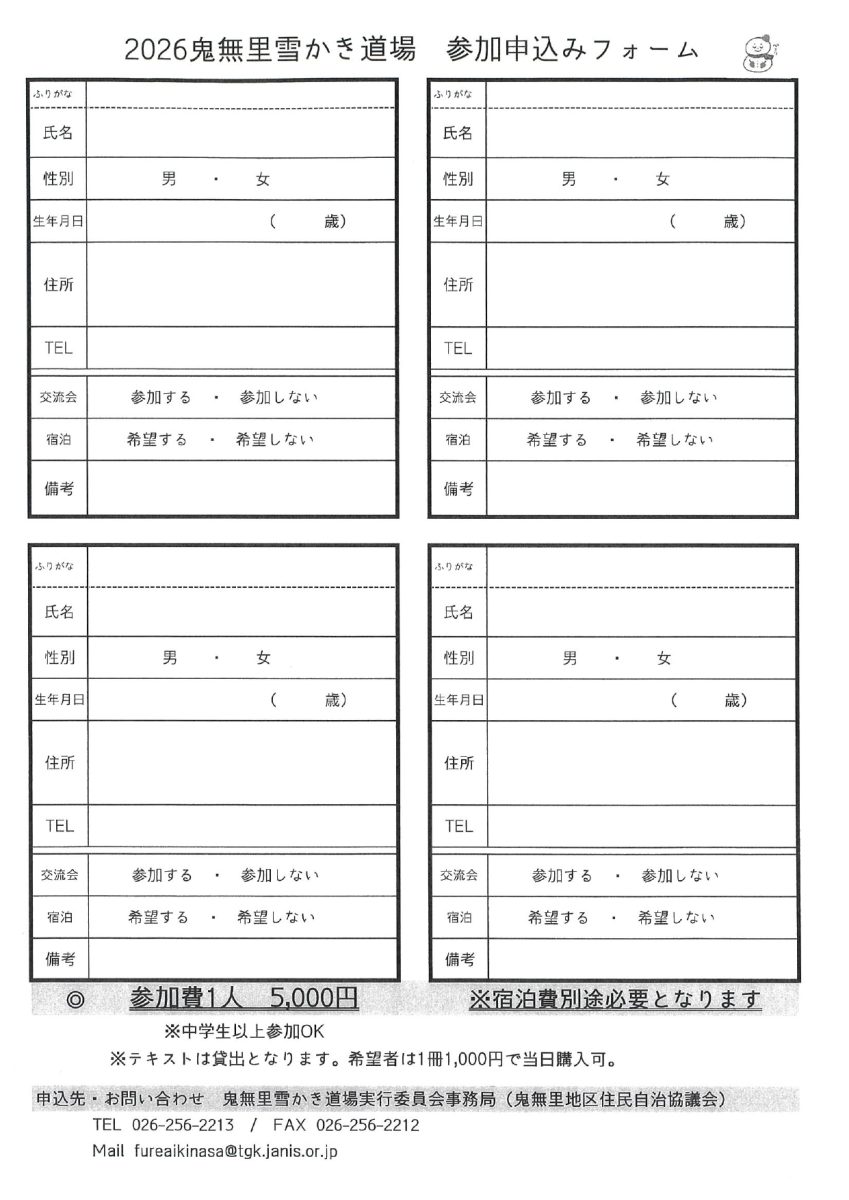 2026鬼無里雪かき道場　参加申込みフォーム
ふりがな
氏名
性別　男　・　女
生年月日　（　　歳）
住所
TEL
交流会　参加する　・　参加しない
宿泊　希望する　・　希望しない
備考
ふりがな
氏名
性別　男　・　女
生年月日　（　　歳）
住所
TEL
交流会　参加する　・　参加しない
宿泊　希望する　・　希望しない
備考
ふりがな
氏名
性別　男　・　女
生年月日　（　　歳）
住所
TEL
交流会　参加する　・　参加しない
宿泊　希望する　・　希望しない
備考
ふりがな
氏名
性別　男　・　女
生年月日　（　　歳）
住所
TEL
交流会　参加する　・　参加しない
宿泊　希望する　・　希望しない
備考
◎　参加費1人　5,000円　※宿泊費別途必要となります
※中学生以上参加OK
※テキストは貸出となります。希望者は1冊1,000円で当日購入可。
申込先・お問い合わせ　鬼無里雪かき道場実行委員会事務局（鬼無里地区住民自治協議会）
TEL 026-256-2213 / FAX 026-256-2212
Mail fureaikinasa@tgk.janis.or.jp